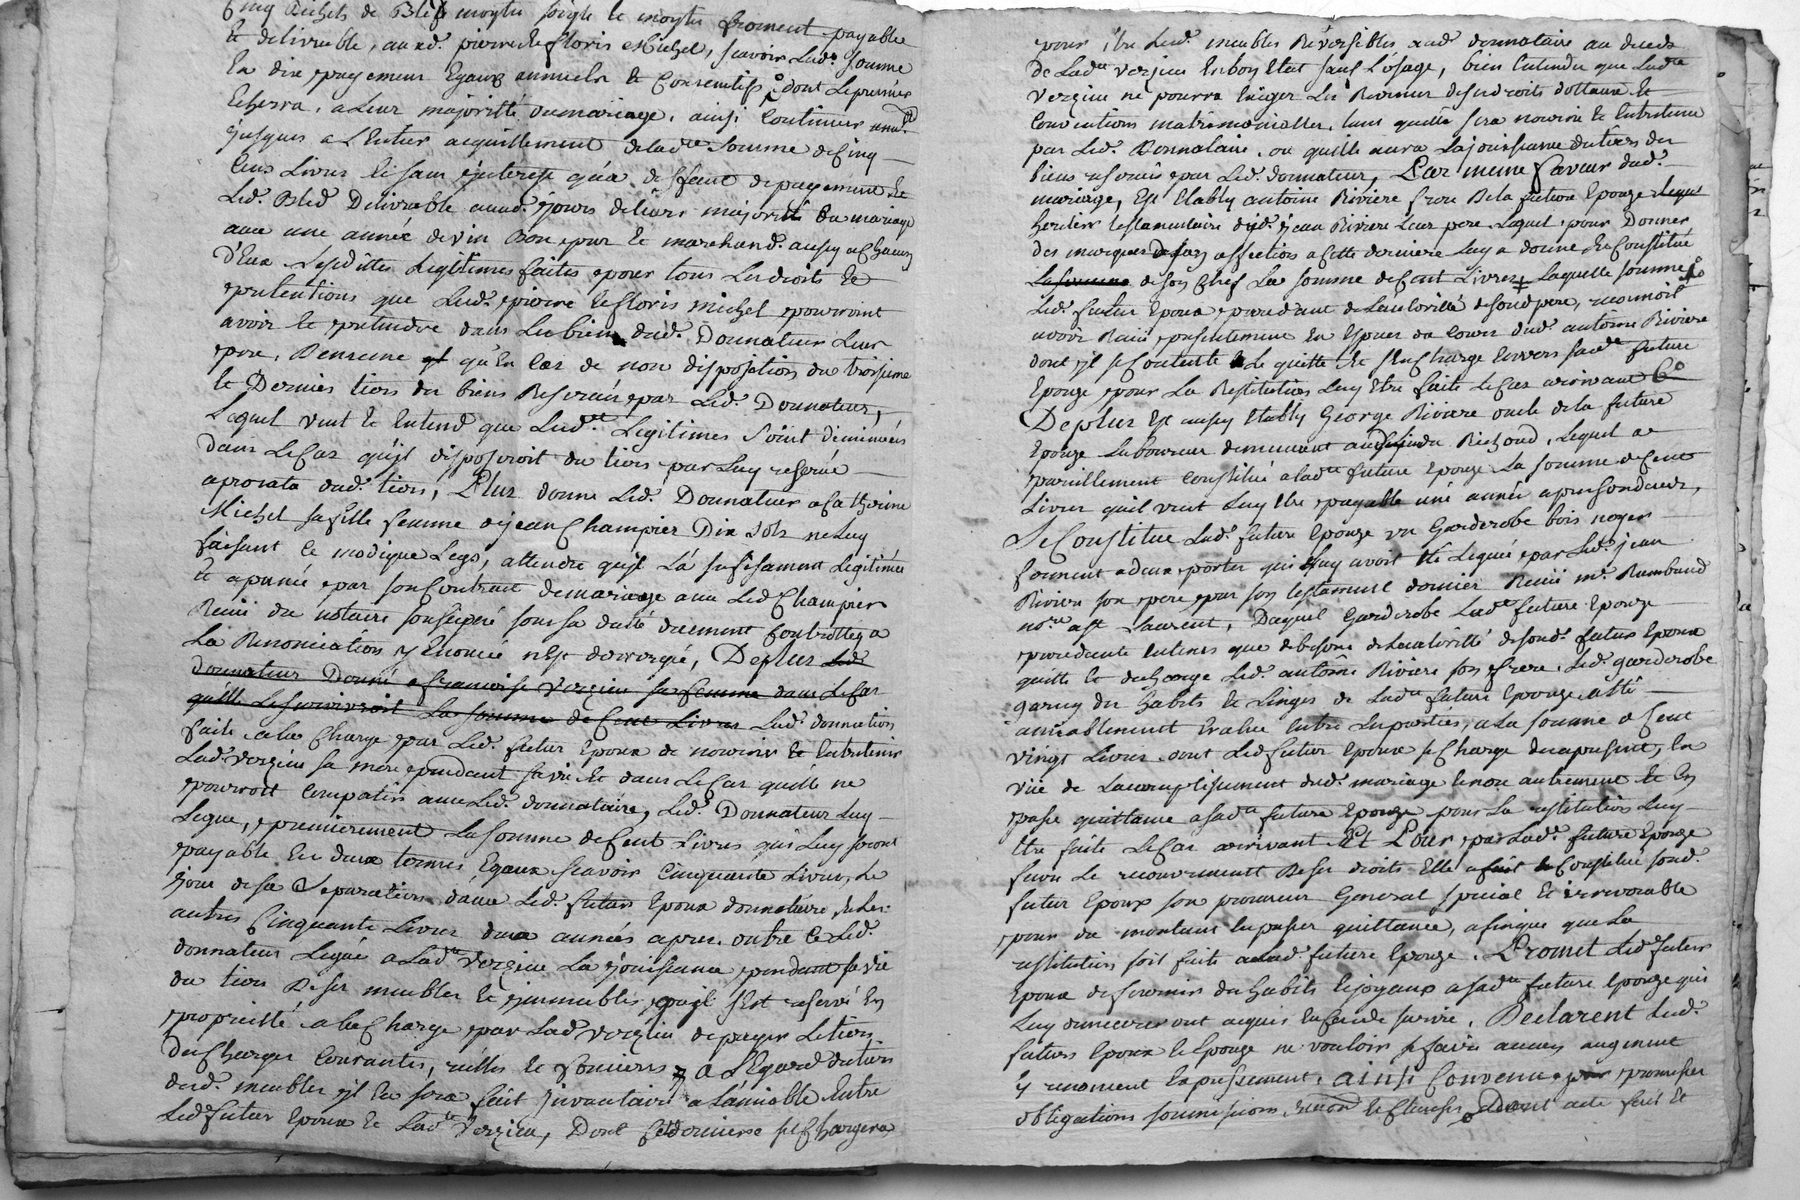 Cinq Bichets de Bled moytié soigle le moytié froment payable
et delivrable, aux d. pierre et floris Michel, scavoir Lad. somme
En dix payemens Egaux annuels et Consecutifs dont Le premier
Echerra, a Leur majorité ou mariage, ainsi Continuer
jusques a L'Entier acquittement de lad.te Somme de Cinq
Cens Livres et sans jnterest qu'a deffaut de payement et
Led. Bled Delivrable aux d. jours de leurs majorité ou mariage
avec une année de vin Bon pur et marchand aussy a chacun
d'Eux Lesdittes Legitimes faites pour tous Les droits et
pretentions que Lesd. pierre et floris michel pourroint
avoir et pretendre dans Les biens dud. Donnateur Leur
pere, Demeure qu'En Cas de non disposition du troisieme
et Dernier tiers des biens Reservés par Led. Donnateur,
Lequel veut et Entend que Lesd. Legitimes Soint diminuées
dans Le Cas qu'jl disposeroit du tiers par Luy reservé
a prorata dud. tiers, Plus donne Led. Donnateur a Catherine
Michel sa fille femme a jean Champier Dix Sols ne Luy
faisant Ce modique Legs, attendu qu'jl L'a sufisament Legitimée
et apanée par son Contract de mariage avec Led Champier
Receu du notaire soussigné sous sa datte duement Controllé a
La Renonciation y Enoncée n'Est derrogée, De plus Led.
donnateur Donne a francoise Vergieu sa femme dans Le Cas
qu'elle Le survivroit La somme de Cent Livres Lad. donnation
faite a la Charge par Led. futur Epoux de nourrir et Entretenir
Lad. Vergieu sa mere pendant sa vie Et dans Le Cas qu'elle ne
pourroit Compatir avec Led. donnataire, Led. Donnateur Luy
Legue, premierement La somme de Cent Livres qui Luy seront
payable En deux termes Egaux scavoir Cinquante Livres, Le
jour de sa Separation davec Led. futur Epoux donnataire Et Les
autres Cinquante Livres deux années apres. outre Ce Led.
donnateur Legue a Lad.te Vergieu La jouissance pendant sa vie
du tiers De ses meubles et jmmeubles qu'jl s'Est reservé En
proprietté a la Charge par Lad. Vergieu de payer Le tiers
Des Charges Courantes, réelles et foncieres a L'Egard du tiers
desd. meubles jl En sera fait jnventaire a L'amiable Entre
Led. futur Epoux et Lad.te Vergieu, Dont Cette derniere se Chargera
pour Etre Lesd. meubles Reversibles aud. donnataire au deceds
De Lad.te Vergieu En bon Etat sauf L'usage, bien Entendu que Lad.te
Vergieu ne pourra Exiger Les Revenus de ses droits dottaux et
Conventions matrimonialles, tant qu'elle sera nourrie et Entretenue
par Led. Donnataire, ou qu'elle aura La jouissance du tiers des
biens reservés par Led. donnateur, Par meme faveur dud.
mariage, Est Etably antoine Riviere frere De la future Epouze
heritier testamentaire dud. jean Riviere Leur pere Lequel pour Donner
des marques de son affection a Cette derniere Luy a donné Et Constitué
La somme de son Chef La somme de Cent Livres Laquelle somme
Led. futur Epoux procedant de L'autorité de sond pere, reconnoit
avoir Receu presentement En Especes de Cours dud. antoine Riviere
dont jl se Contente Le quitte Et s'En Charge Envers sad.te future
Epouze pour La Restitution Luy Etre faite Le Cas arrivant
De plus Est aussy Etably George Riviere oncle de la future
Epouze Laboureur demeurant Richoud, Lequel a
pareillement Constitué a lad.te future Epouze La somme de Cent
Livres quil veut Luy Etre payable une année apres son deceds,
Se Constitue Lad. future Epouze un Garderobe bois noyer
fermant a deux portes qui Luy avoit Eté Legué par Led. jean
Riviere son pere par son testament dernier Receu m.e Rambaud
no.re a St Laurent, Duquel Garderobe Lad.te future Epouze
procedante Entiers que de besoin de L'autorité de sond. futur Epoux
quitte et decharge Led. antoine Riviere son frere, Led. garderobe
garny des habits et Linges de Lad.te future Epouze a Eté
amiablement Evalué Entre Les parties, a La somme de Cent
vingt Livres, dont Led futur Epoux se Charge des a present, En
vüe de L'accomplissement dud. mariage Et non autrement Et En
passe quittance a sad.te future Epouze pour La restitution Luy
Etre faite Le Cas arrivant Et Pour par Lad. future Epouze
suivre Le recouvrement De ses droits Elle a Constitué sond.
futur Epoux son procureur General special Et irrevocable
pour du montant En passer quittance, a fin que La
restitution soit faite a lad. future Epouze. Promet Led futur
Epoux de fournir des habits et joyaux a sad.te future Epouze qui
Luy demeureront acquis En Cas de survie. Declarent Lesd.
futurs Epoux Et Epouze ne vouloir se faire aucun augment
y renoncent Expressement. ainsi Convenu promesses
obligations soumissions renon.on et Clauses Dont acte fait Et